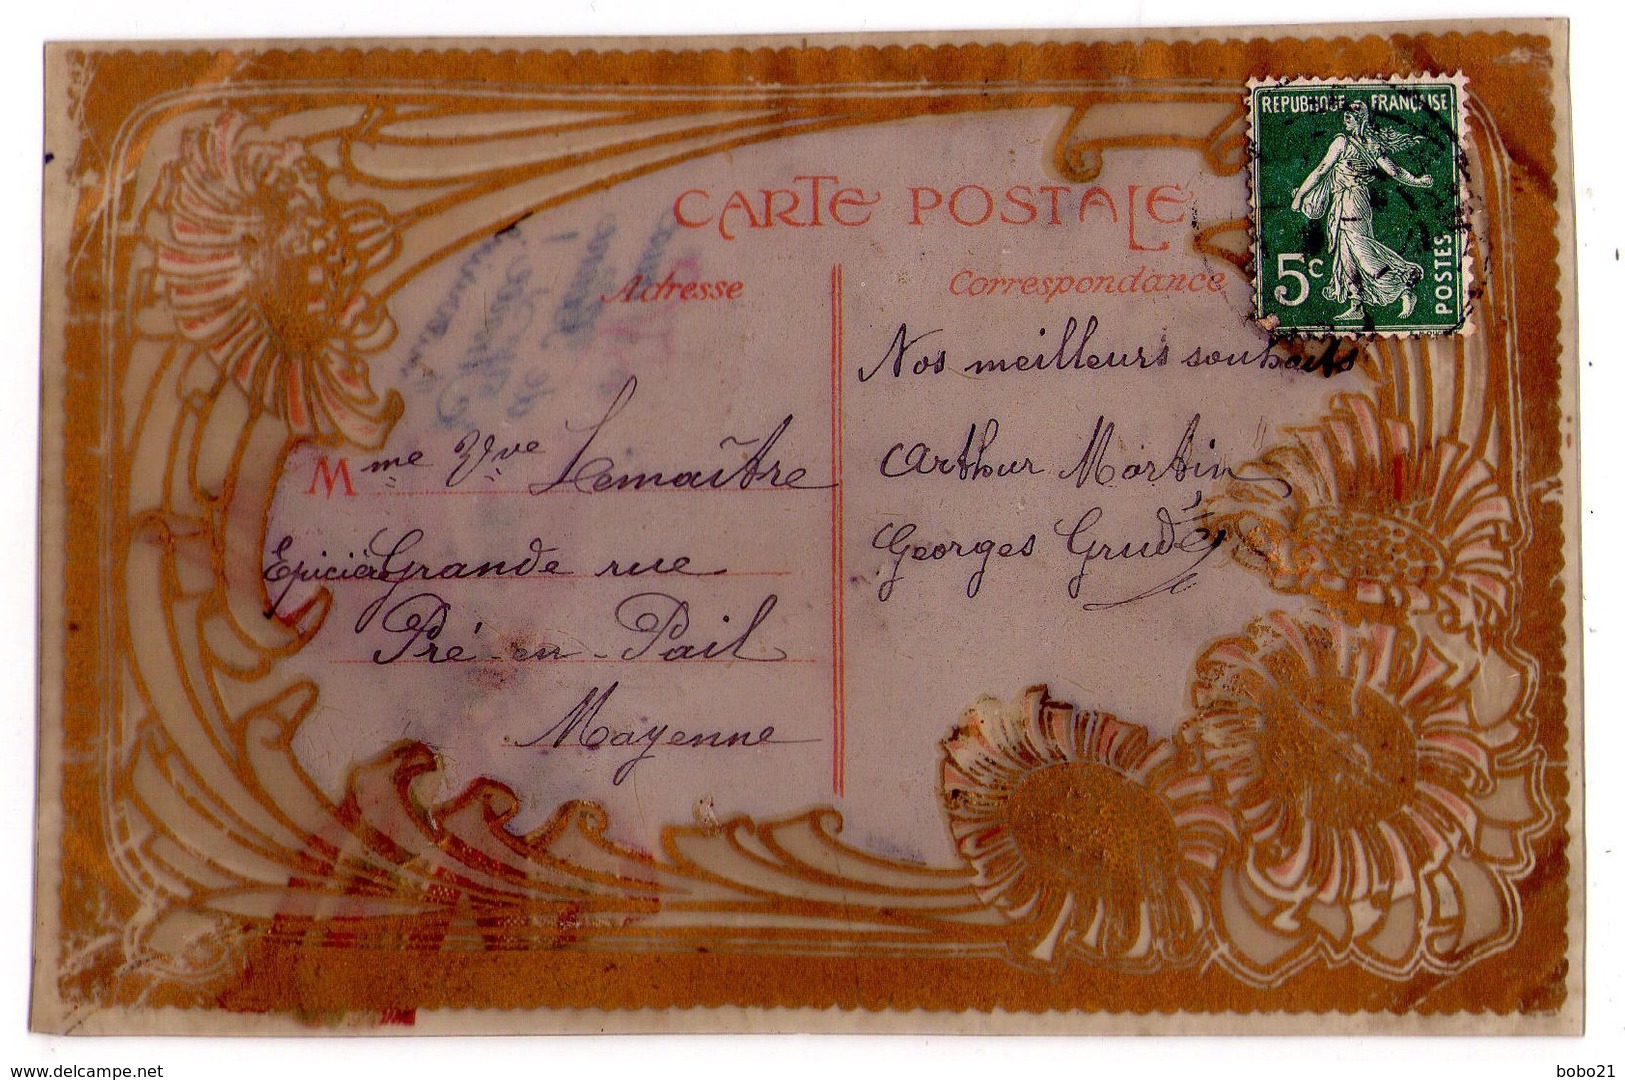 REPUBLIQUE FRANÇAISE
5c
POSTES
CARTE POSTALE
Adresse
Correspondance
Nos meilleurs souhaits
Arthur Martin
Georges Grudé
Mme Vve Lemaître
Epicière Grande rue
Pré-en-Pail
Mayenne
www.delcampe.net
bobo21